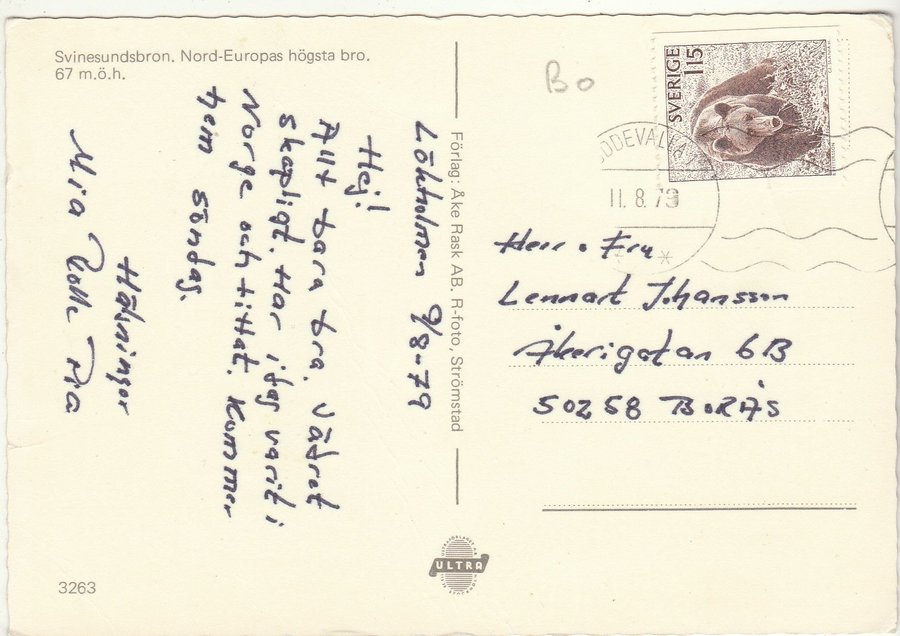 Svinesundsbron. Nord-Europas högsta bro.
67 m.ö.h.
Bo
SVERIGE 115
UDDEVALLA
11.8.79
Lökholmen 9/8-79
Hej!
Allt bara bra. Vädret
skapligt. Har idag varit i
Norge och tittat. Kommer
hem söndag.
Hälsningar
Mia Rolle Pia
Förlag: Åke Rask AB. R-foto, Strömstad
Herr o Fru
Lennart Johansson
Åkerigatan 6B
50258 BORÅS
ULTRA
3263